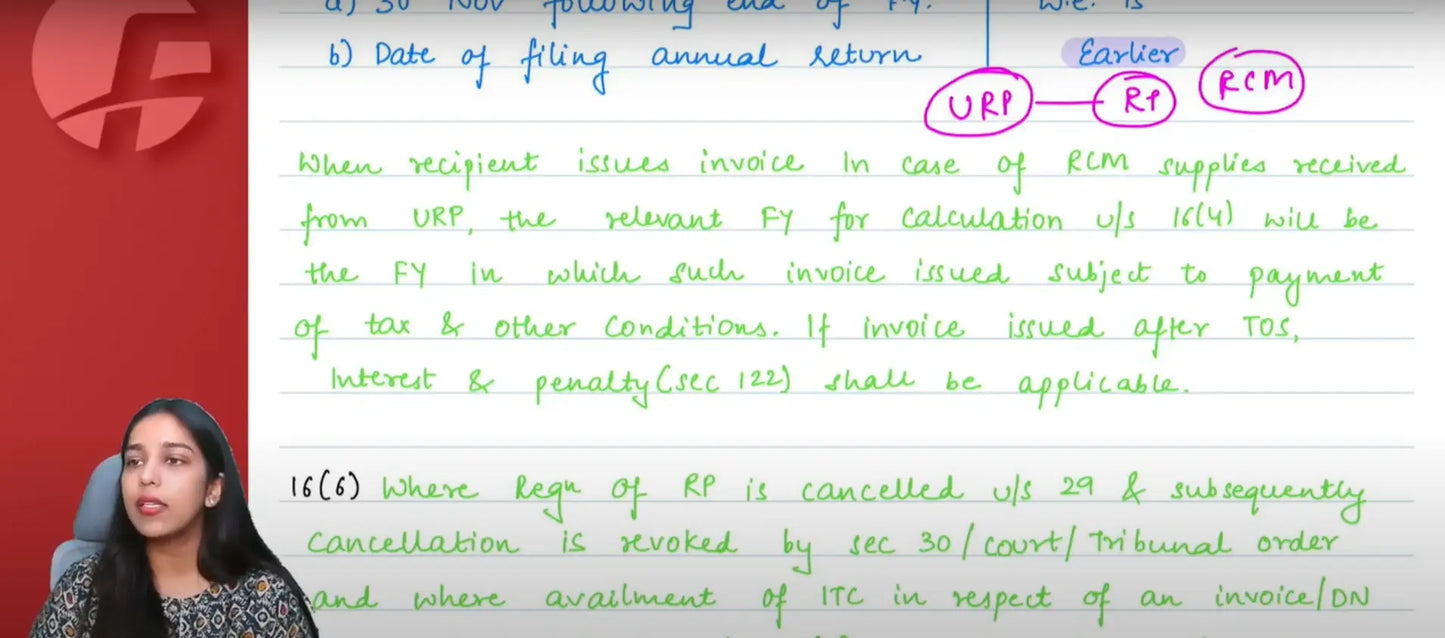 a) 30 Nov following end of FY. w.e. is
b) Date of filing annual return Earlier
URP RP RCM
When recipient issues invoice in case of RCM supplies received
from URP, the relevant FY for calculation u/s 16(4) will be
the FY in which such invoice issued subject to payment
of tax & other conditions. If invoice issued after TOS,
Interest & penalty (sec 122) shall be applicable.
16(6) Where Regn of RP is cancelled u/s 29 & subsequently
cancellation is revoked by sec 30/court/Tribunal order
and where availment of ITC in respect of an invoice/DN